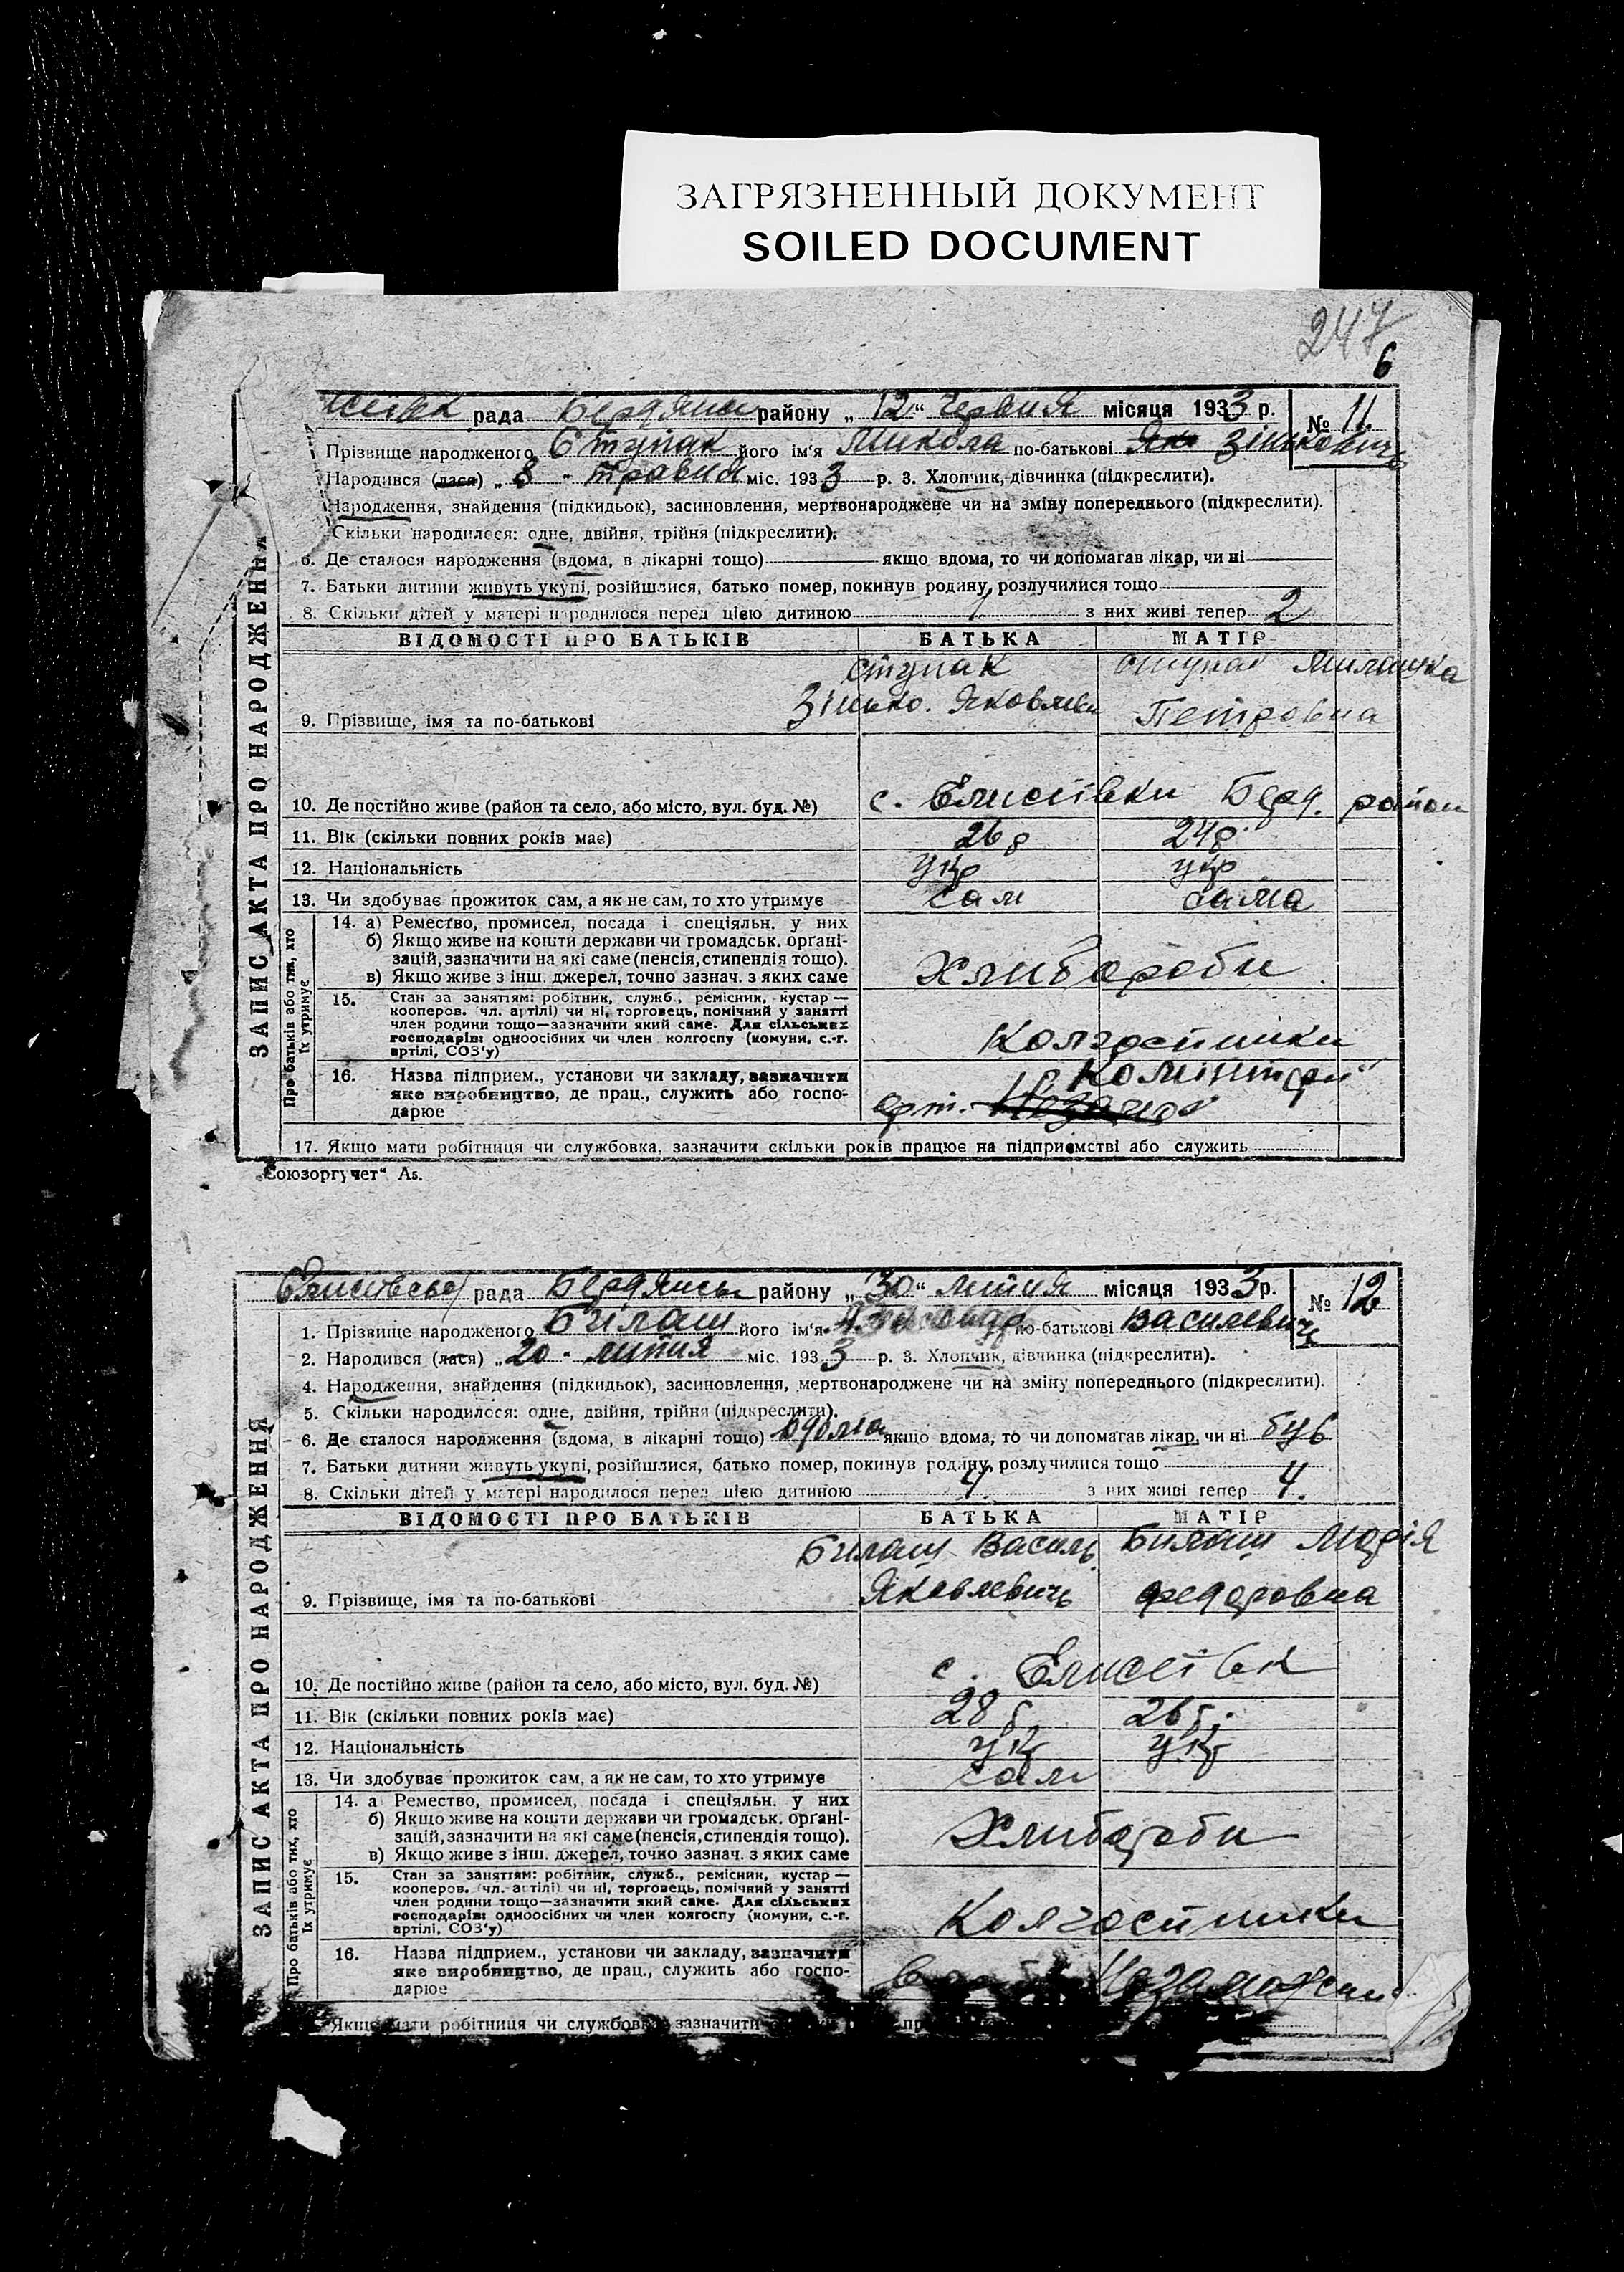 ЗАГРЯЗНЕННЫЙ ДОКУМЕНТ
SOILED DOCUMENT
247
6
рада Бердянськ району „12“ червня місяця 1933 р. № 11.
Прізвище народженого Ступак його ім'я Микола по-батькові Зінькович
Народився (лася) „8 - травня міс. 1933 р. 3. Хлопчик, дівчинка (підкреслити).
Народження, знайдення (підкидьок), засиновлення, мертвонароджене чи на зміну попереднього (підкреслити).
Скільки народилося: одне, двійня, трійня (підкреслити).
6. Де сталося народження (вдома, в лікарні тощо) якщо вдома, то чи допомагав лікар, чи ні
7. Батьки дитини живуть укупі, розійшлися, батько помер, покинув родину, розлучилися тощо
8. Скільки дітей у матері народилося перед цією дитиною 1 з них живі тепер 2
ВІДОМОСТІ ПРО БАТЬКІВ БАТЬКА МАТІР
Ступак Ступак Милашка
9. Прізвище, імя та по-батькові Зінько. Яковлеви Петровна
10. Де постійно живе (район та село, або місто, вул. буд. №) с. Єлисіївки Берд. район
11. Вік (скільки повних років має) 26 р 24 р
12. Національність укр укр
13. Чи здобуває прожиток сам, а як не сам, то хто утримує сам сама
14. а) Ремество, промисел, посада і спеціяльн. у них
б) Якщо живе на кошти держави чи громадськ. орґані-
зацій, зазначити на які саме (пенсія, стипендія тощо).
в) Якщо живе з інш. джерел, точно зазнач. з яких саме Хлибороби
15. Стан за заняттям: робітник, служб., ремісник, кустар —
кооперов. (чл. артілі) чи ні, торговець, помічний у занятті
член родини тощо—зазначити який саме. Для сільських
господарів: одноосібних чи член колгоспу (комуни, с.-г.
артілі, СОЗ'у) Колгоспники
16. Назва підприєм., установи чи закладу, зазначити
яке виробництво, де прац., служить або госпо-
дарює арт. Комінтерн"
17. Якщо мати робітниця чи службовка, зазначити скільки років працює на підприємстві або служить
ЗАПИС АКТА ПРО НАРОДЖЕННЯ
Про батьків або тих, хто їх утримує
„Союзоргучет“ А5.
Єлисіївська рада Бердянськ району „30“ липня місяця 1933 р. № 12
1. Прізвище народженого Билаш його ім'я по-батькові Василевичь
2. Народився (лася) „20 - липня міс. 1933 р. 3. Хлопчик, дівчинка (підкреслити).
4. Народження, знайдення (підкидьок), засиновлення, мертвонароджене чи на зміну попереднього (підкреслити).
5. Скільки народилося: одне, двійня, трійня (підкреслити).
6. Де сталося народження (вдома, в лікарні тощо) вдома якщо вдома, то чи допомагав лікар, чи ні був
7. Батьки дитини живуть укупі, розійшлися, батько помер, покинув родину, розлучилися тощо
8. Скільки дітей у матері народилося перед цією дитиною 4 з них живі тепер 4.
ВІДОМОСТІ ПРО БАТЬКІВ БАТЬКА МАТІР
Билаш Василь Билаш Марія
9. Прізвище, імя та по-батькові Яковлевичь Федоровна
10. Де постійно живе (район та село, або місто, вул. буд. №) с. Єлисеївка
11. Вік (скільки повних років має) 28 р 26 р.
12. Національність укр укр
13. Чи здобуває прожиток сам, а як не сам, то хто утримує сам
14. а Ремество, промисел, посада і спеціяльн. у них
б) Якщо живе на кошти держави чи громадськ. орґані-
зацій, зазначити на які саме (пенсія, стипендія тощо).
в) Якщо живе з інш. джерел, точно зазнач. з яких саме Хлибороби
15. Стан за заняттям: робітник, служб., ремісник, кустар —
кооперов. (чл. артілі) чи ні, торговець, помічний у занятті
член родини тощо—зазначити який саме. Для сільських
господарів: одноосібних чи член колгоспу (комуни, с.-г.
артілі, СОЗ'у) Колгоспники
16. Назва підприєм., установи чи закладу, зазначити
яке виробництво, де прац., служить або госпо-
дарює Незаможник
Якщо мати робітниця чи службовка, зазначити
ЗАПИС АКТА ПРО НАРОДЖЕННЯ
Про батьків або тих, хто їх утримує